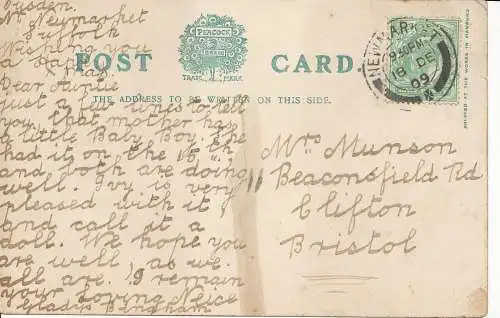 Ousden
Nr Newmarket
Suffolk
Wishing you
a Happy
Xmas
Dear Auntie
Just a few lines to tell
you that mother has
a little Baby Boy. She
had it on the 15th
and both are doing
well. Ivy is very
pleased with it
and call it a
doll. We hope you
are well as we
all are. I remain
your loving Neice
Gladys Bingham
PEACOCK
BRAND
TRADE MARK
POST CARD.
THE ADDRESS TO BE WRITTEN ON THIS SIDE.
NEWMARKET
9.30PM
18 DE
09
PRINTED AT THE WORKS IN HAMBURG
Mrs Munson
11 Beaconsfield Rd
Clifton
Bristol